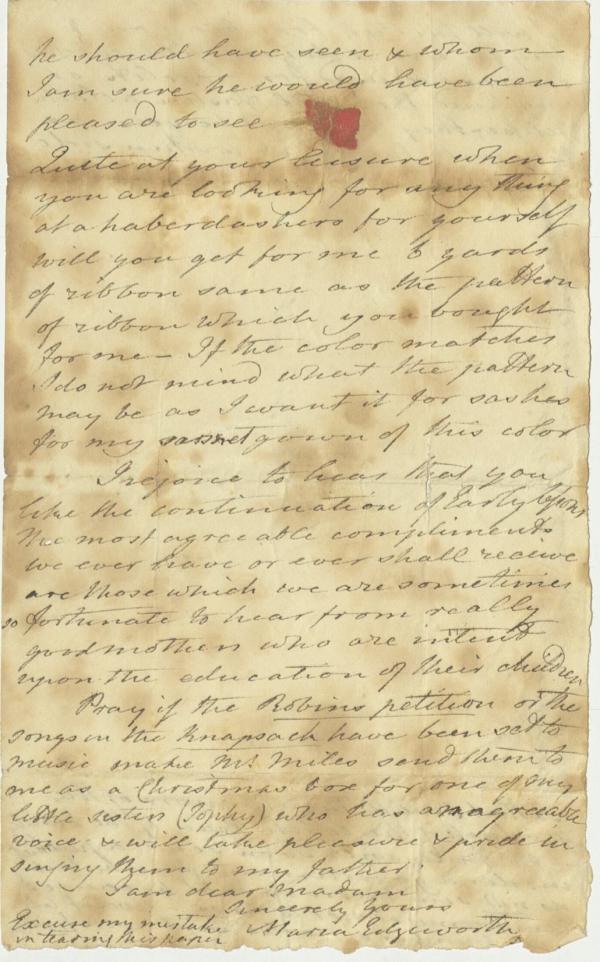 he should have seen & whom
I am sure he would have been
pleased to see
Quite at your leisure when
you are looking for any thing
at a haberdashers for yourself
will you get for me 3 yards
of ribbon same as the pattern
of ribbon which you bought
for me – If the color matches
I do not mind what the pattern
may be as I want it for sashes
for my sarsnet gown of this color
I rejoice to hear that you
like the continuation of Early Lessons
The most agreeable compliments
we ever have or ever shall receive
are those which we are sometimes
so fortunate to hear from really
good mothers who are intent
upon the education of their children
Pray if the Robins petition or the
songs in the Knapsack have been set to
music make Mr. Miles send them to
me as a Christmas box for one of my
little sisters (Sophy) who has an agreeable
voice & will take pleasure & pride in
singing them to my father.
I am dear madam
Sincerely Yours
Maria Edgeworth
Excuse my mistake
in tearing this paper